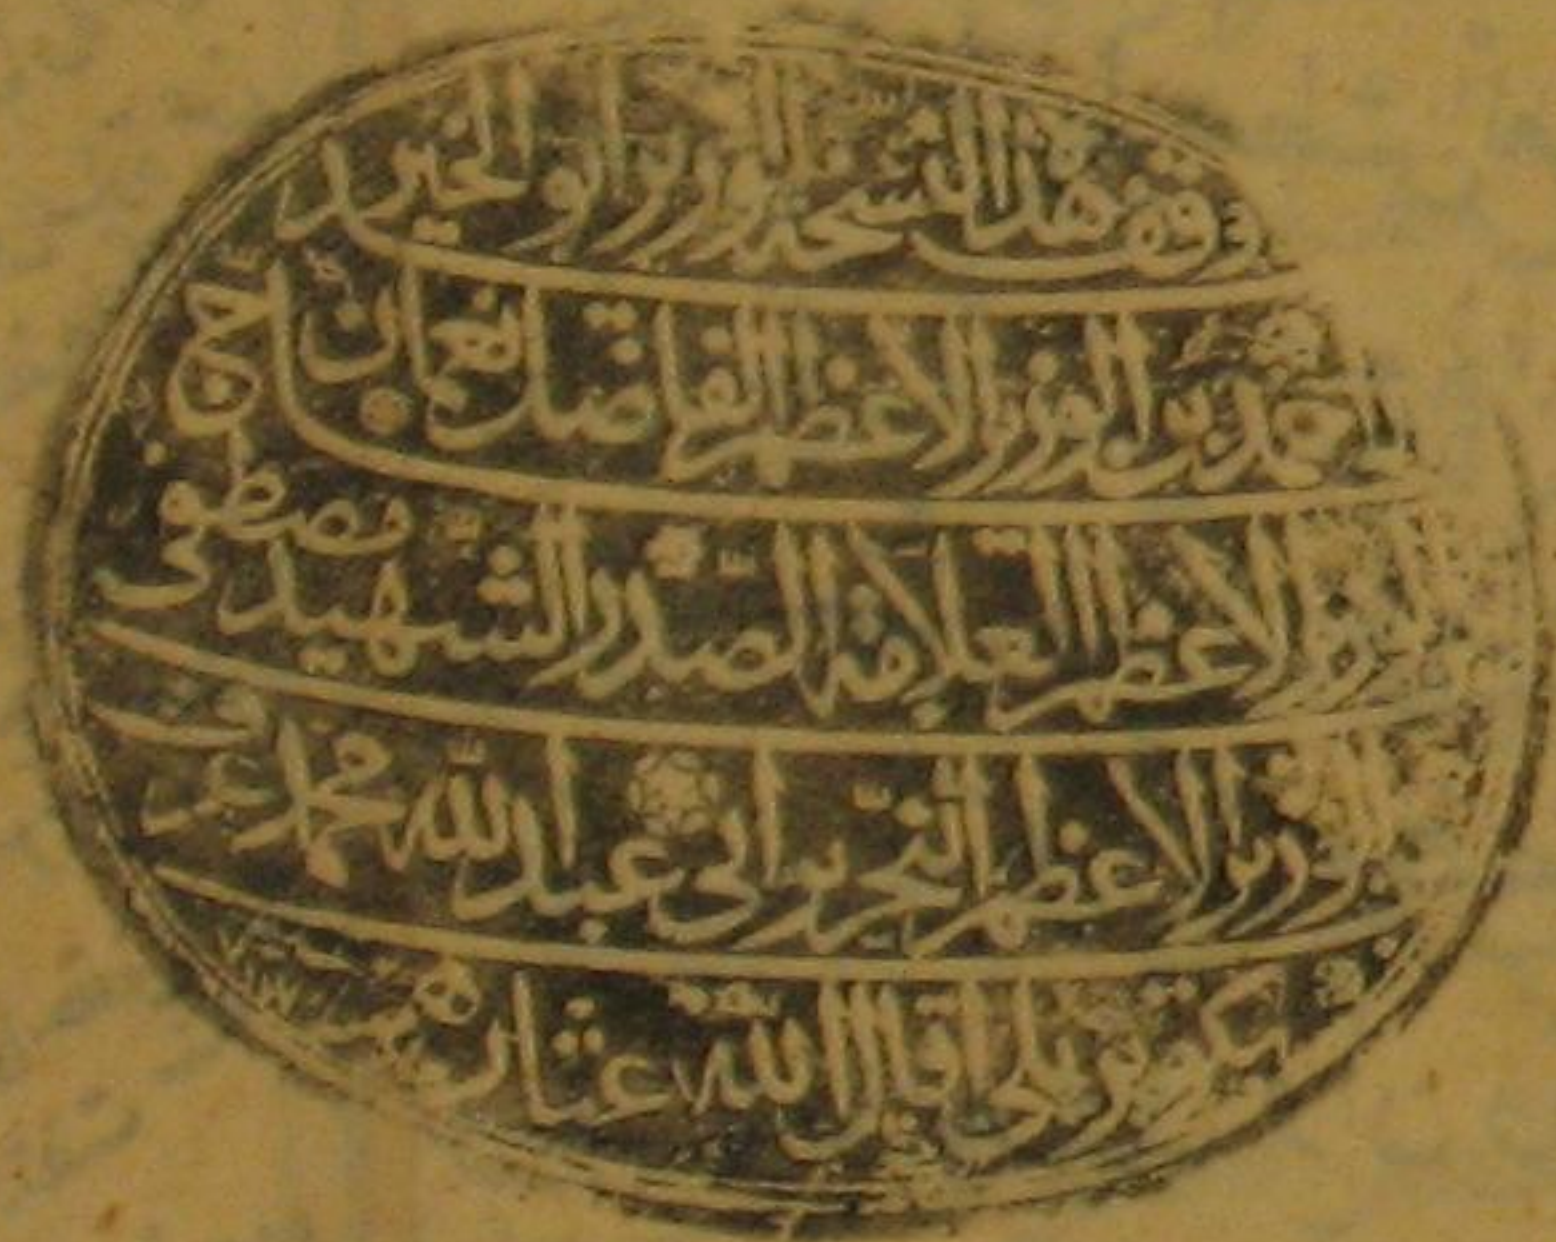 وقف هذا النسخة الوزير ابو الخير
الحاج احمد بن الوزير الاعظم الفاضل نعمان بن
الوزير الاعظم العلامة الصدر الشهيد مصطفى
بن الوزير الاعظم النحرير ابي عبد الله محمد عرف
بكوپريلي اقال الله عثارهم